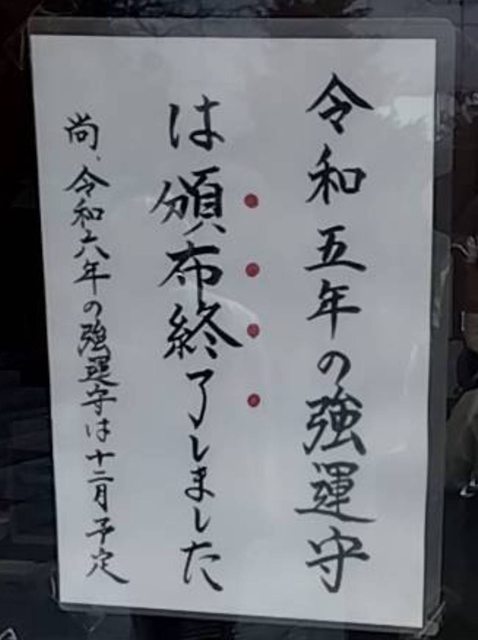 令和五年の強運守
は頒布終了しました
尚、令和六年の強運守は十二月予定